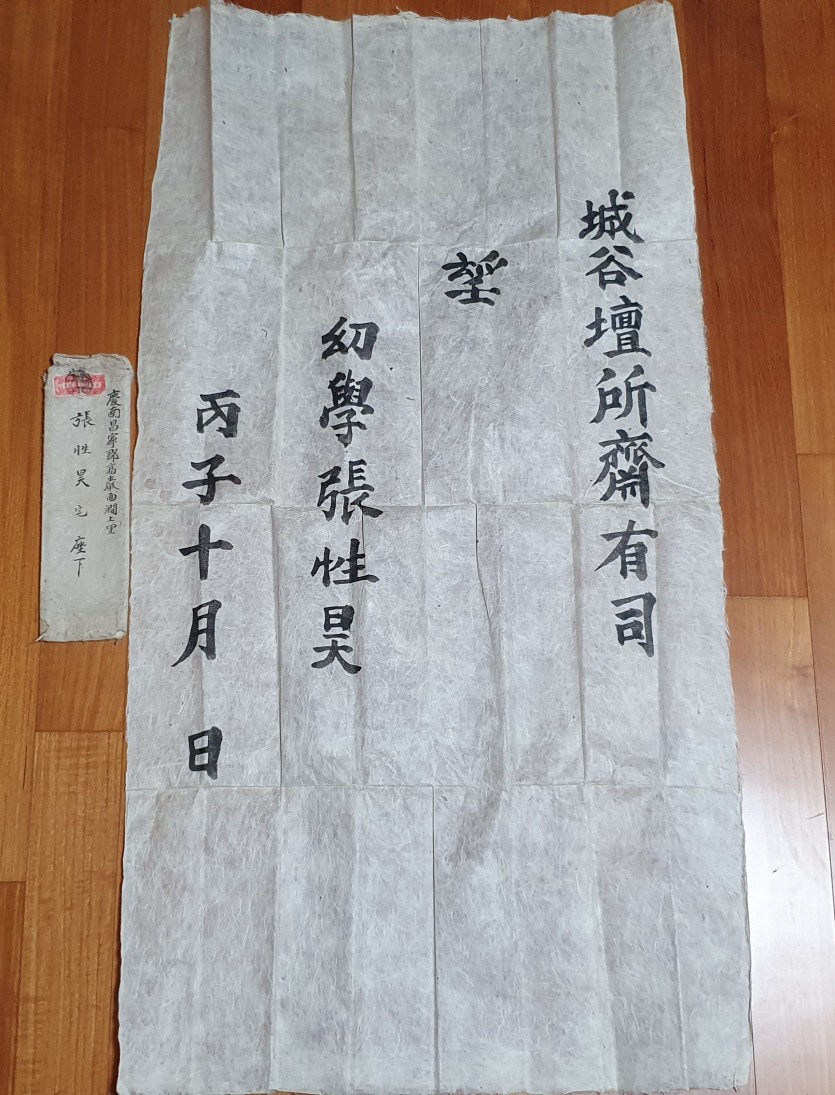 城谷壇所齋有司
望
幼學張性昊
丙子十月 日
慶南昌寧郡高巖面澗上里
張性昊宅 座下